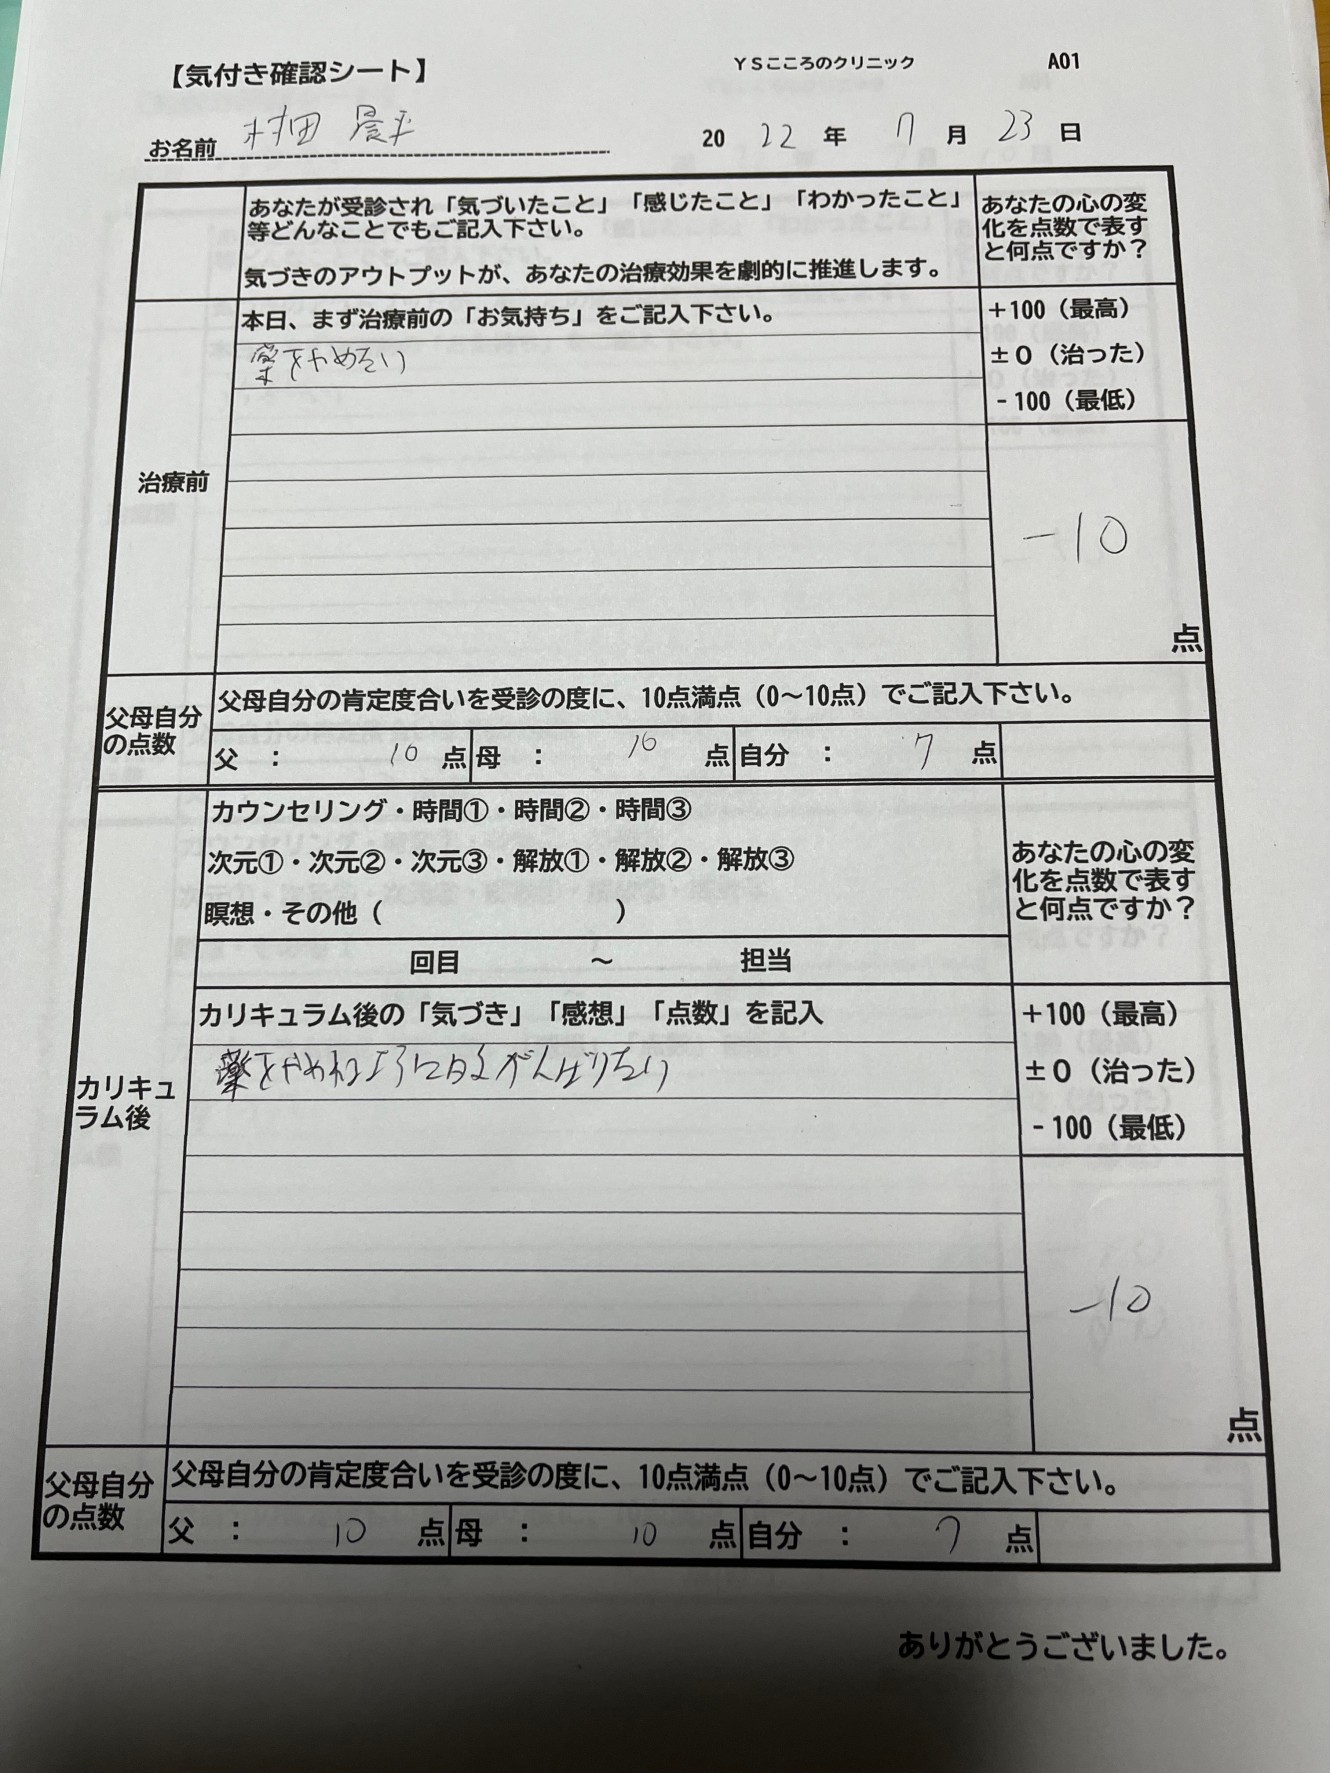 【気付き確認シート】 YSこころのクリニック A01
お名前 村田 晨平 2022年 7月 23日
あなたが受診され「気づいたこと」「感じたこと」「わかったこと」
等どんなことでもご記入下さい。
気づきのアウトプットが、あなたの治療効果を劇的に推進します。
あなたの心の変
化を点数で表す
と何点ですか？
治療前
本日、まず治療前の「お気持ち」をご記入下さい。
薬をやめたい
+100（最高）
±0（治った）
-100（最低）
-10
点
父母自分
の点数
父母自分の肯定度合いを受診の度に、10点満点（0～10点）でご記入下さい。
父 ： 10 点 母 ： 10 点 自分 ： 7 点
カウンセリング・時間①・時間②・時間③
次元①・次元②・次元③・解放①・解放②・解放③
瞑想・その他（ ）
回目 ～ 担当
あなたの心の変
化を点数で表す
と何点ですか？
カリキュ
ラム後
カリキュラム後の「気づき」「感想」「点数」を記入
薬をやめれるように日々がんばりたい
+100（最高）
±0（治った）
-100（最低）
-10
点
父母自分
の点数
父母自分の肯定度合いを受診の度に、10点満点（0～10点）でご記入下さい。
父 ： 10 点 母 ： 10 点 自分 ： 7 点
ありがとうございました。